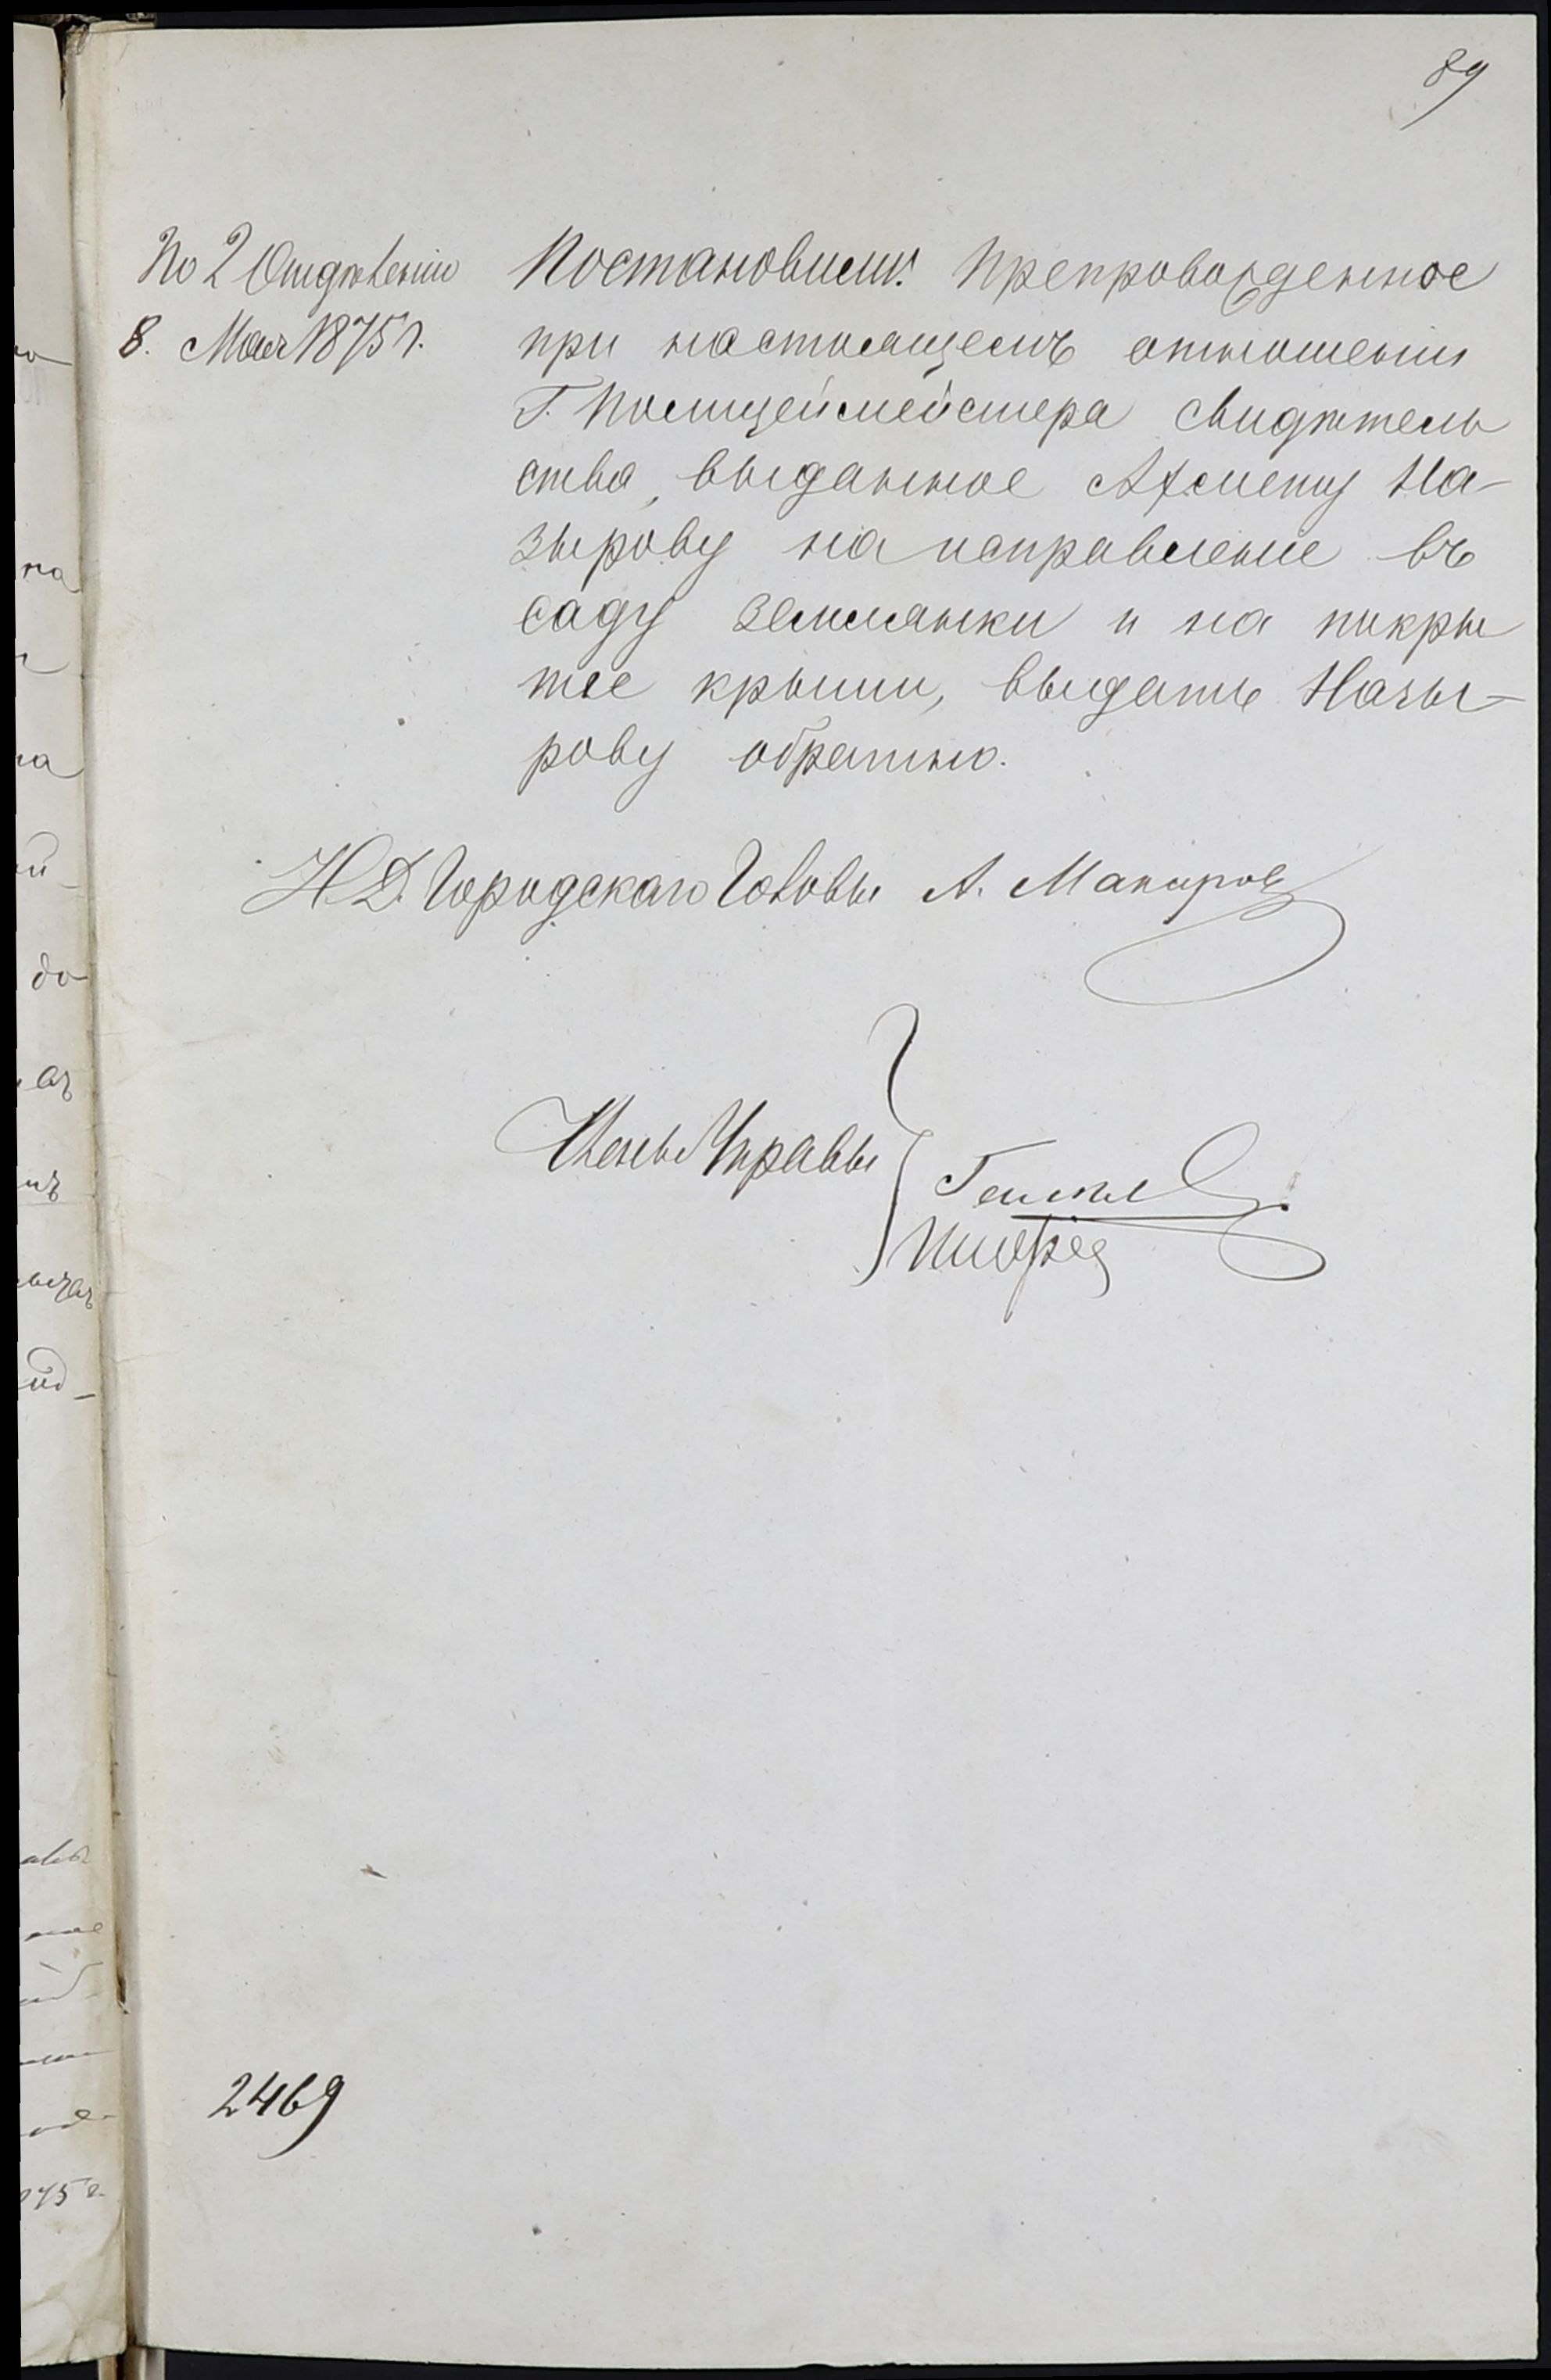 89
По 2 Отдѣленію
8. Мая 1875 г.
Постановили: Препровожденное
при настоящемъ отношеніи
Г. Полицеймейстера свидѣтель
ство, выданное Ахмету На-
зырову на исправленіе въ
саду землянки и на покры
тіе крыши, выдать Назы-
рову обратно.
И. Д. Городскаго Головы А. Макаровъ
Члены Управы
2469